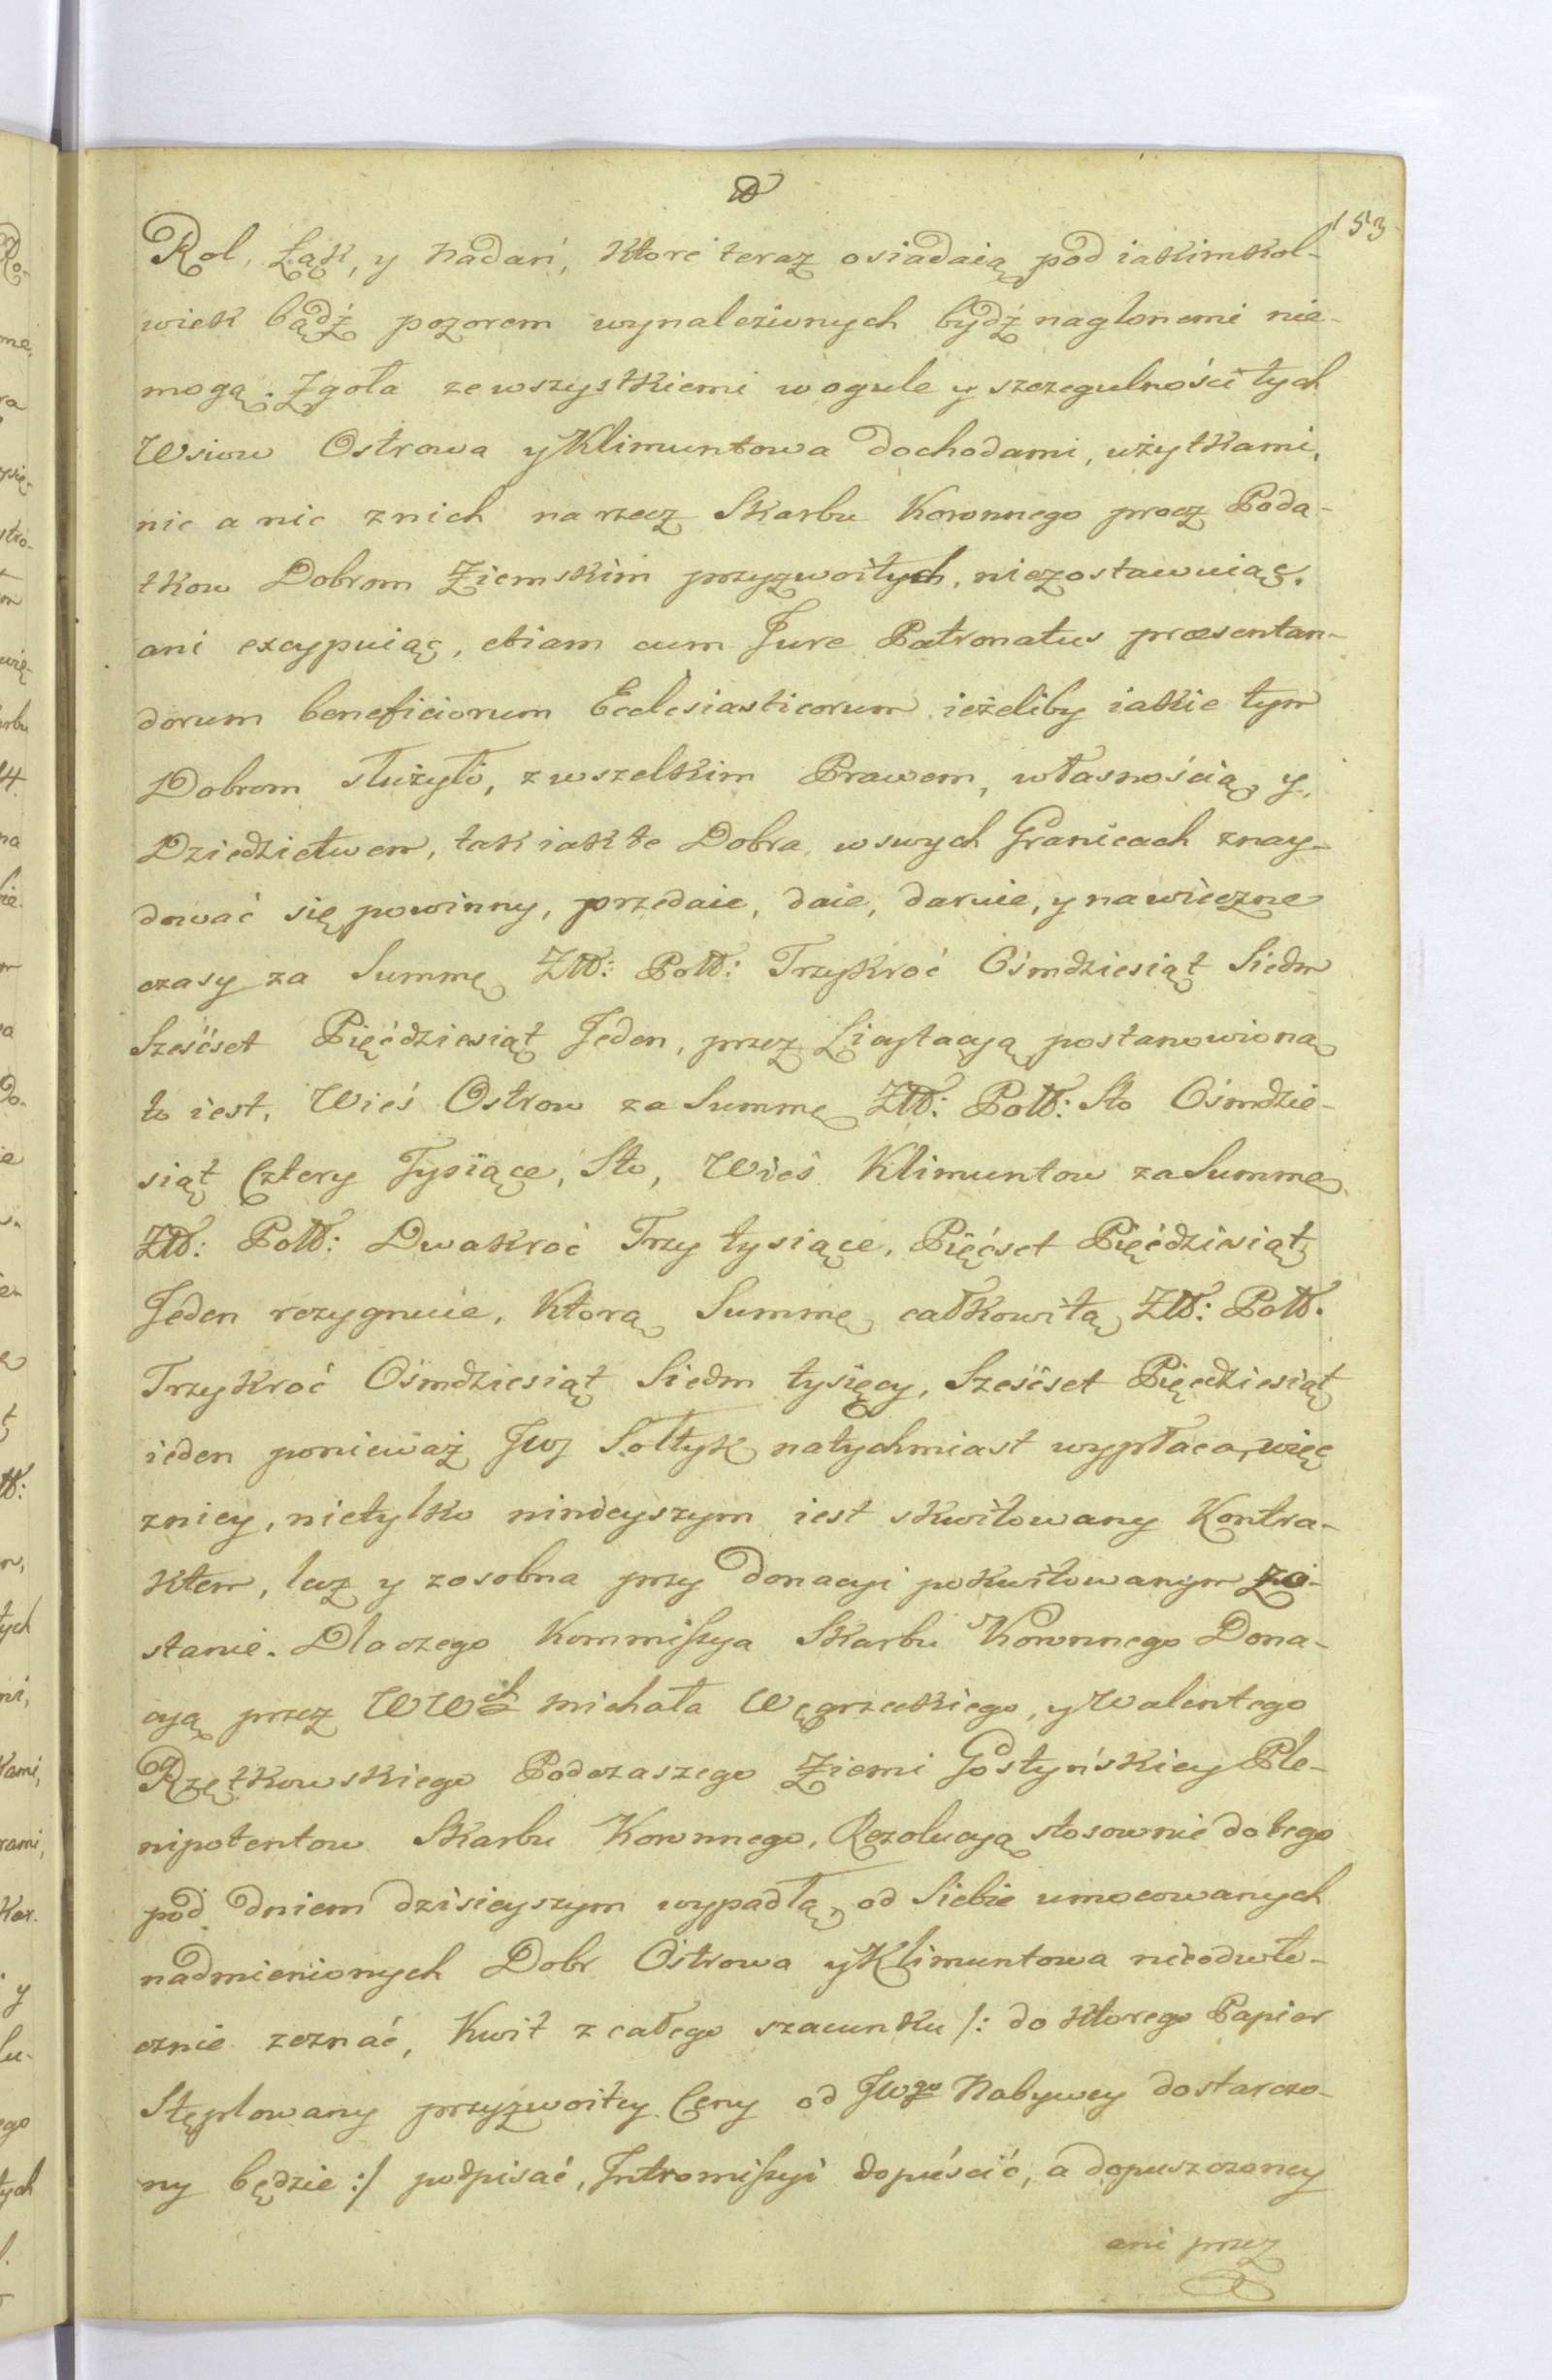 153
Rol, Łąk, y Nadań, ktore teraz osiadaią pod iakimkol-
wiek bądź pozorem wynalezionych bydź naglonemi nie-
mogą. Zgoła ze wszystkiemi wogule y szczegulności tych
Wsiow Ostrowa y Klimuntowa dochodami, użytkami,
nic a nic znich na rzecz Skarbu Koronnego procz Poda-
tkow Dobrom Ziemskim przyzwoitych, niezostawuiąc,
ani excypuiąc, etiam cum Jure Patronatus præsentan-
dorum beneficiorum Ecclesiasticorum ieżeliby iakie tym
Dobrom służyło, z wszelkim Prawem, własnością, y
Dziedzictwem, tak iak te Dobra wswych Granicach znay-
dować się powinny, przedaie, daie, daruie, y nawieczne
czasy za Summę Złł: Poll: Trzykroć Ośmdziesiąt Siedm
Sześćset Pięćdziesiąt Jeden, przez Licytacyą postanowioną
to iest, Wieś Ostrow za Summę Złł: Poll: Sto Ośmdzie-
siąt Cztery Tysiące, Sto, Wieś Klimuntow za Summę
Złł: Poll: Dwakroć Trzy tysiące, Pięćset Pięćdziesiąt
Jeden rezygnuie, Ktorą Summę całkowitą Złł: Poll.
Trzykroć Ośmdziesiąt Siedm tysięcy, Sześćset Pięcdziesiąt
ieden ponieważ JWJ Sołtyk natychmiast wypłaca, więc
zniey, nietylko ninieyszym iest skwitowany Kontra-
ktem, lecz y zosobna przy Donacyi pokwitowanym zo-
stanie. Dlaczego Kommissya Skarbu Koronnego Dona-
cyą przez WWch Michała Węgrzeckiego, y Walentego
Rzętkowskiego Podczaszego Ziemi Gostyńskiey Ple-
nipotentow Skarbu Koronnego, Rezolucyą stosownie do tego
pod dniem dzisieyszym wypadłą, od Siebie umocowanych
nadmienionych Dobr Ostrowa y Klimuntowa nieodwło-
cznie zeznać, Kwit z całego szacunku /: do Ktorego Papier
Stęplowany przyzwoitey Ceny od JWgo Nabywcy dostarczo-
ny będzie :/ podpisać, Intromissyi dopuścić, a dopuszczoney
ani przez